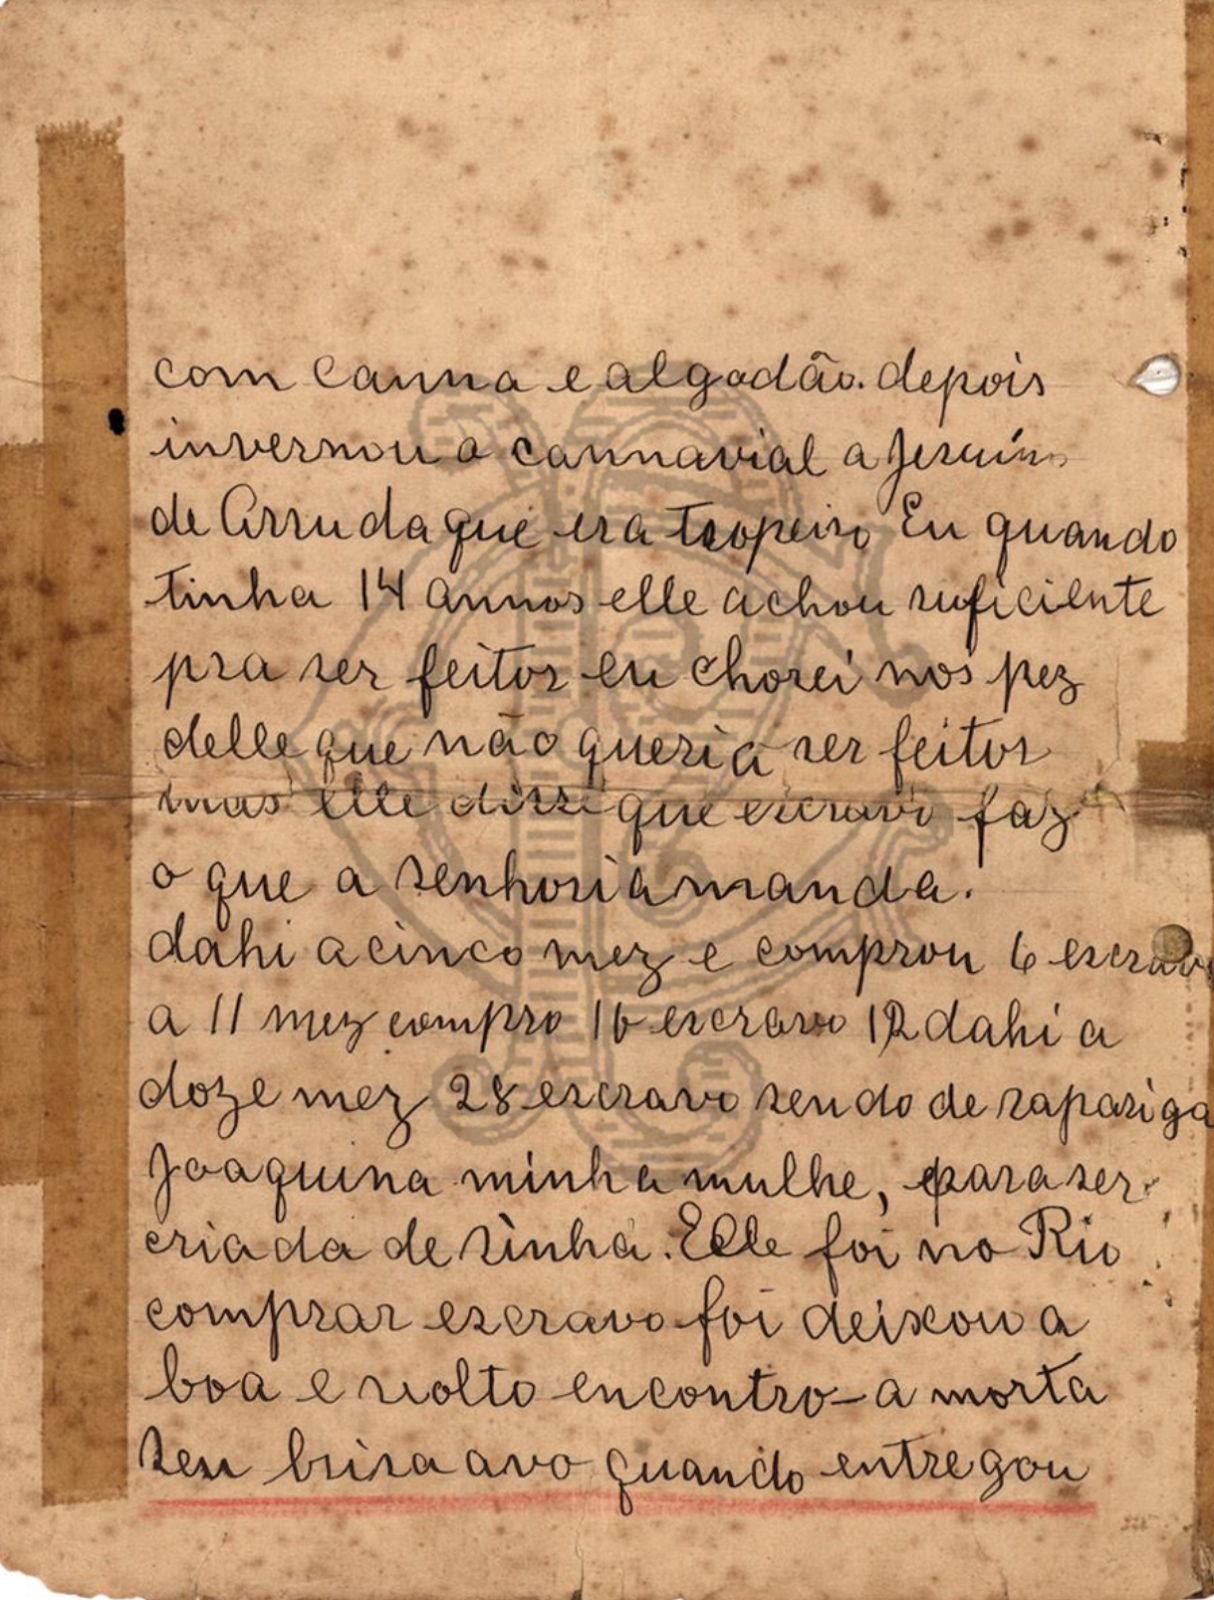 com Canna e algodão. depois
invernou o cannavial a Jesuino
de Arruda que era tropeiro Eu quando
tinha 14 annos elle achou suficiente
pra ser feitor eu chorei nos pez
delle que não queria ser feitor
mas elle disse que escravo faz
o que a senhoria manda.
dahi a cinco mez e comprou 6 escravo
a 11 mez compro 16 escravo 12 dahi a
doze mez 28 escravo sendo de rapariga
Joaquina minha mulhe, para ser
criada de sinhá. Elle foi no Rio
comprar escravo foi deixou a
boa e volto encontro-a morta
seu bisaavo quando entregou